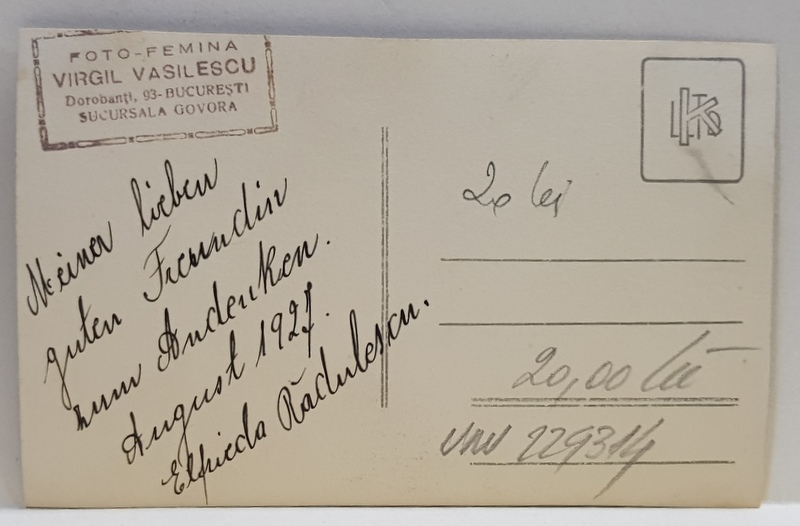 FOTO-FEMINA
VIRGIL VASILESCU
Dorobanți, 93-BUCUREȘTI
SUCURSALA GOVORA
Meiner lieben
guten Freundin
zum Andenken.
August 1927.
Elfrieda Rădulescu.
20 lei
20,00 lei
229314